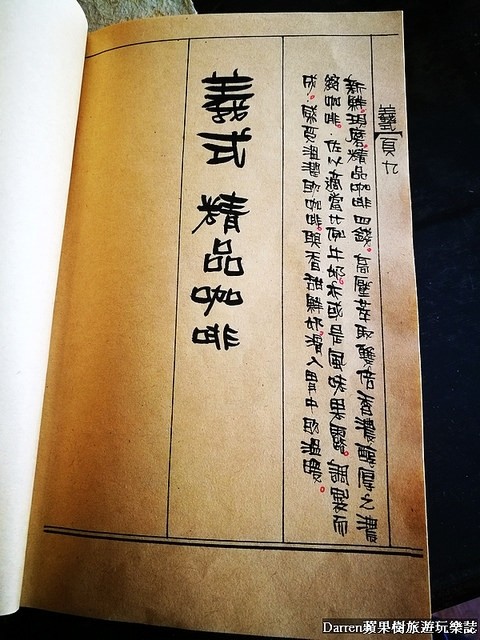 義頁九
新鮮現磨。精品咖啡四錢。高壓萃取雙倍香濃醇厚之濃
縮咖啡。佐以適當比例牛奶。亦或是風味果露。調製而
成。感受溫潤的咖啡。與香甜鮮奶。滑入胃中的溫暖。
義式 精品咖啡
Darren蘋果樹旅遊玩樂誌